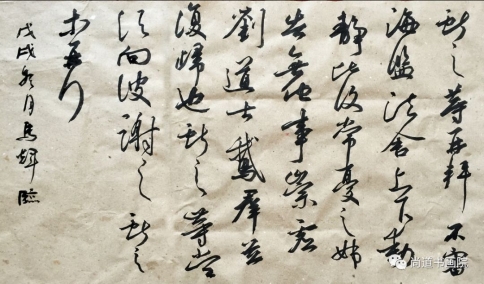 獻之等再拜不審
海鹽諸舍上下動
靜比復常憂之姊
告無他事崇虛
劉道士鵝群並
復歸也獻之等當
須向彼謝之獻之
等再拜
戊戌冬月馬輝臨
尚道书画院